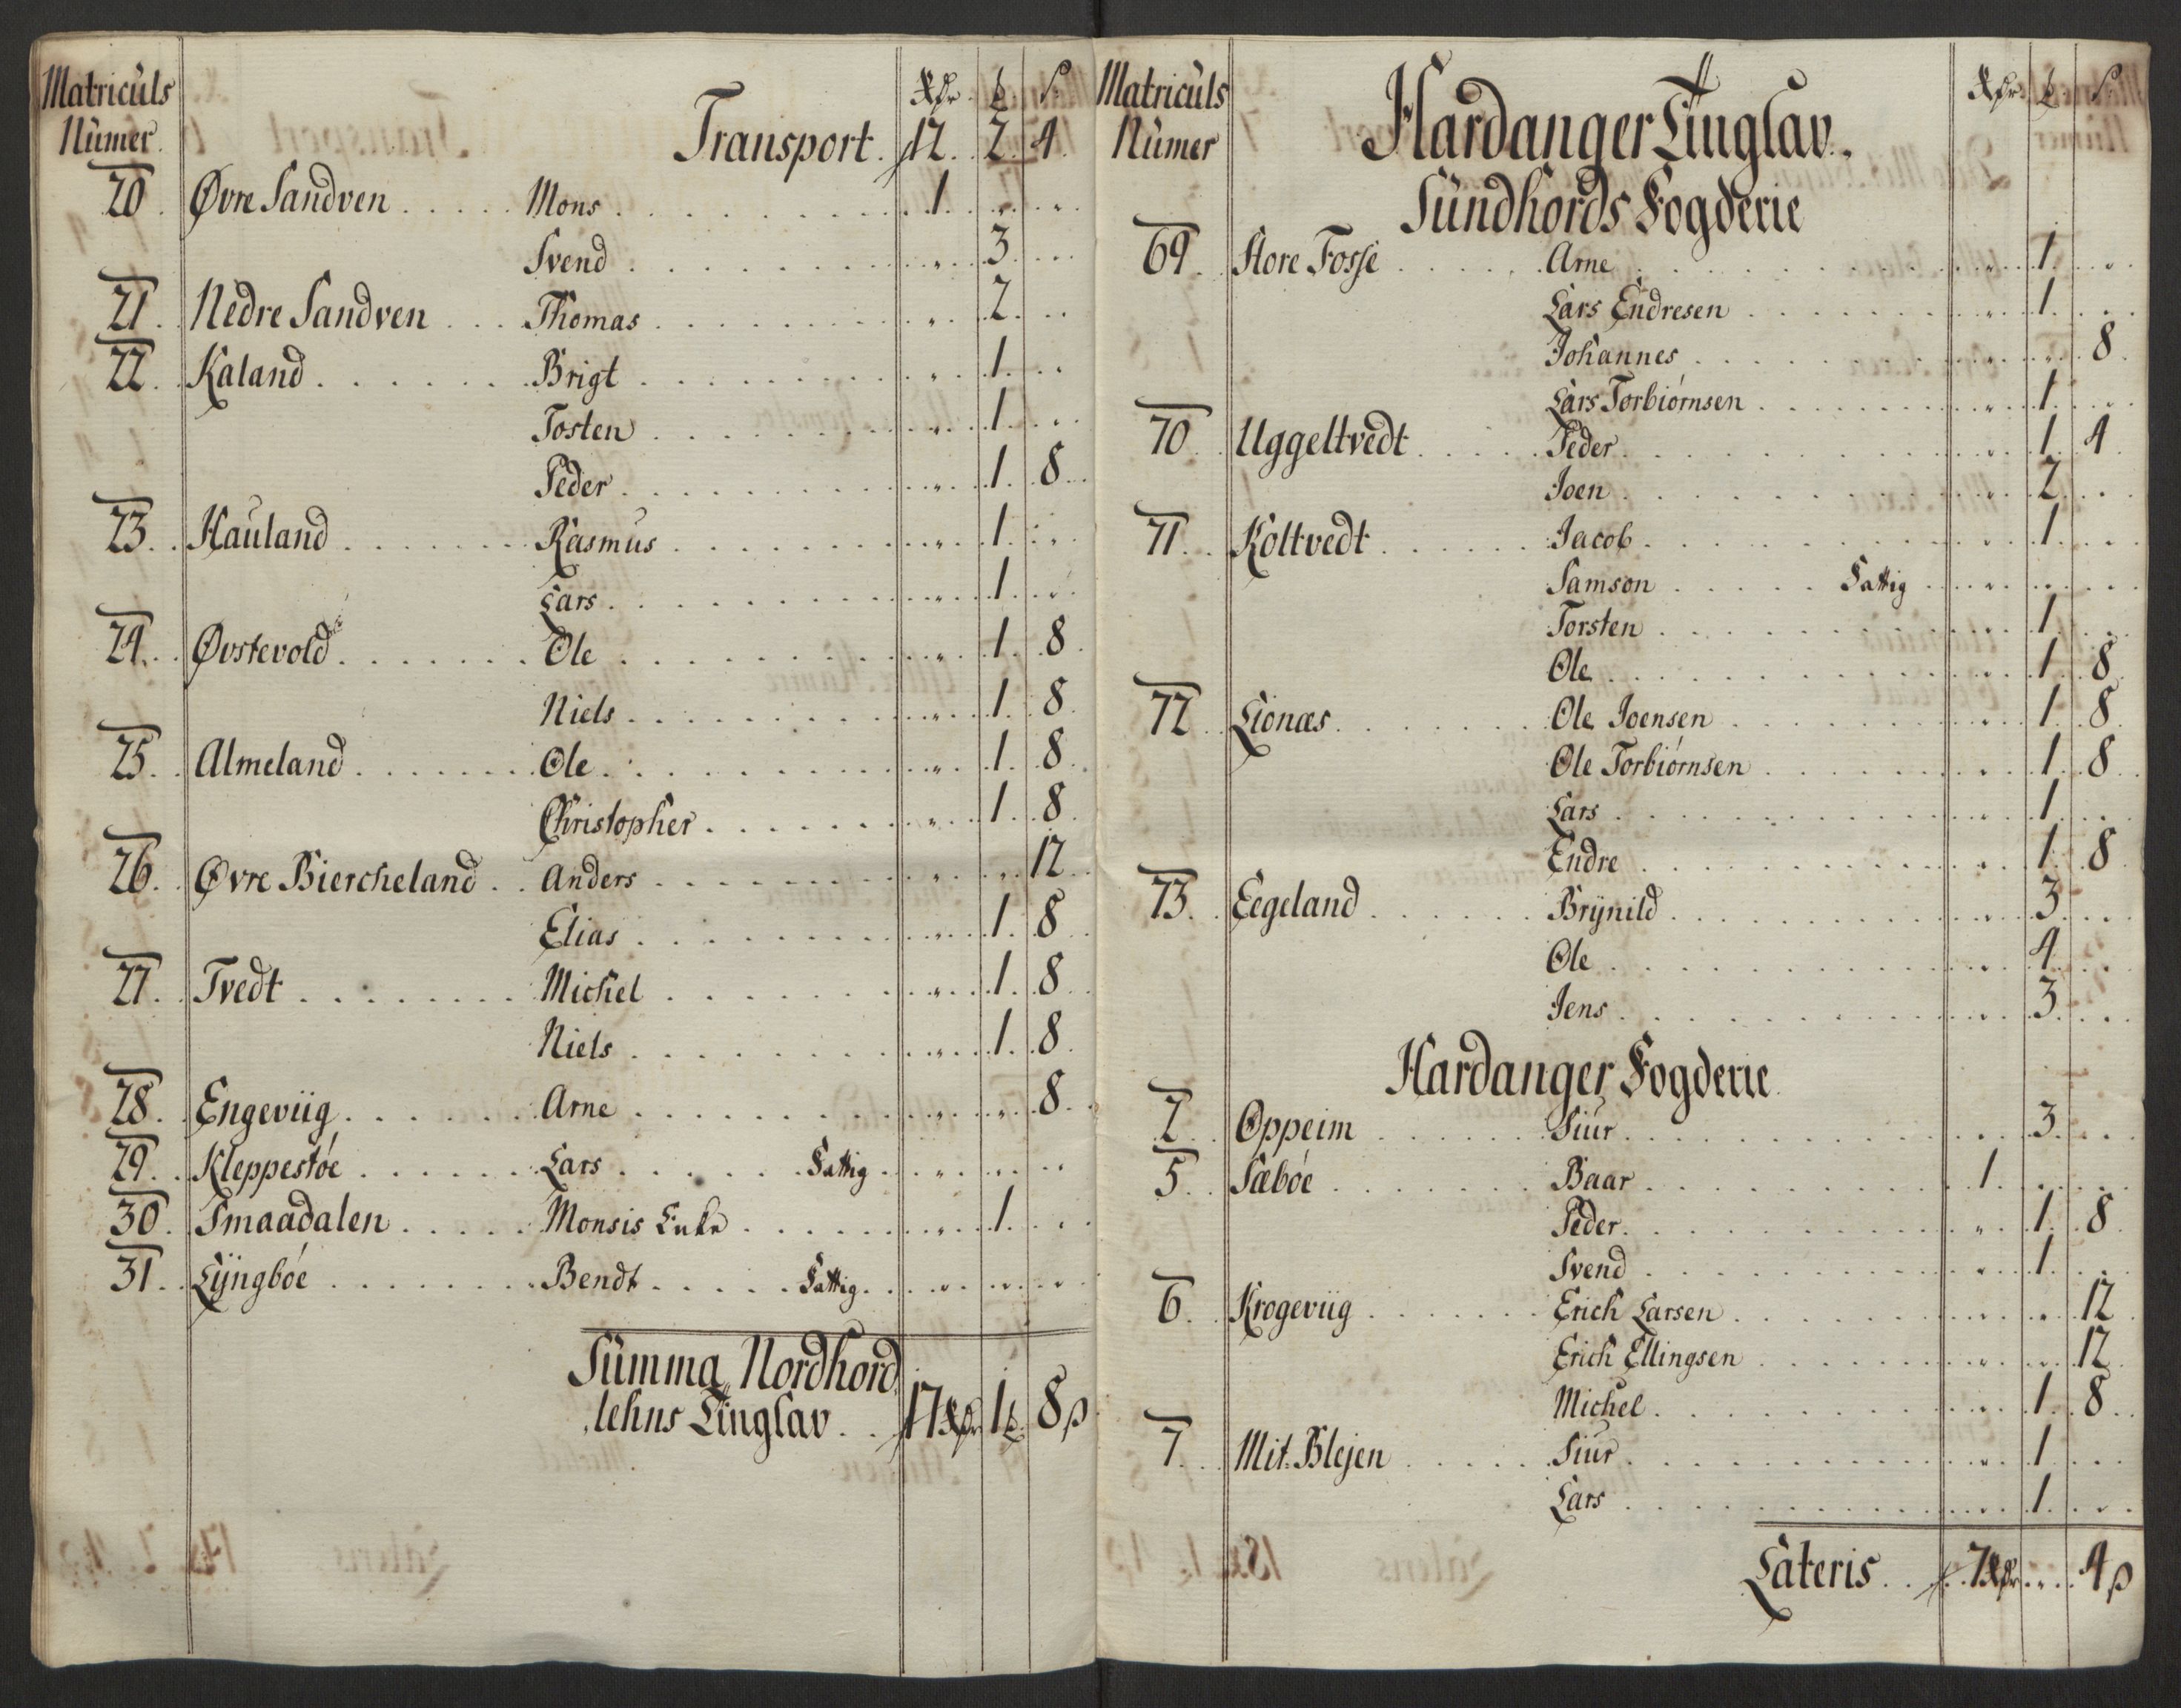 Matriculs Rdr. ₻. ß.
Numer. Transport. 12. 2. 4.
20. Øvre Sandven Mons 1
Svend 3
21. Nedre Sandven Thomas 2
22. Kaland Brigt 1
Tosten 1
Peder 1. 8
23. Hauland Rasmus 1
Lars 1
24. Øvstevold Ole 1. 8
Niels 1. 8
25. Almeland Ole 1. 8
Christopher 1. 8
26. Øvre Biercheland Anders 12
Elias 1. 8
27. Tvedt Michel 1. 8
Niels 1. 8
28. Engeviig Arne 8
29. Kleppestøe Lars Fattig
30. Smaadalen Monsis Enke 1
31. Lÿngbøe Bendt Fattig
Summa Nordhord
lehns Tinglav 17 Rdr 1 ₻ 8 ß
Matriculs Hardanger Tinglav. Rdr. ₻. ß.
Numer
Sundhords Fogderie
69. Store Fosse Arne 1
Lars Endresen 1
Johannes 8
Lars Torbiørnsen 1
70. Uggeltvedt Peder 1. 4
Joen 2
71. Koltvedt Jacob 1
Samson Fattig
Torsten 1
Ole 1. 8
72 Lionæs Ole Joensen 1. 8
Ole Torbiørnsen 1. 8
Lars 1
Endre 1. 8
73. Eegeland Brÿnild 3
Ole 4
Jens 3
Hardanger Fogderie
2. Oppeim Siur 3
5. Sæbøe Baar 1
Peder 1. 8
Svend 1
6. Krogeviig Erich Larsen 12
Erich Ellingsen 12
Michel 1. 8
7. Mit. Blejen Siur 1
Lars 1
Lateris 7 Rdr 4 ß